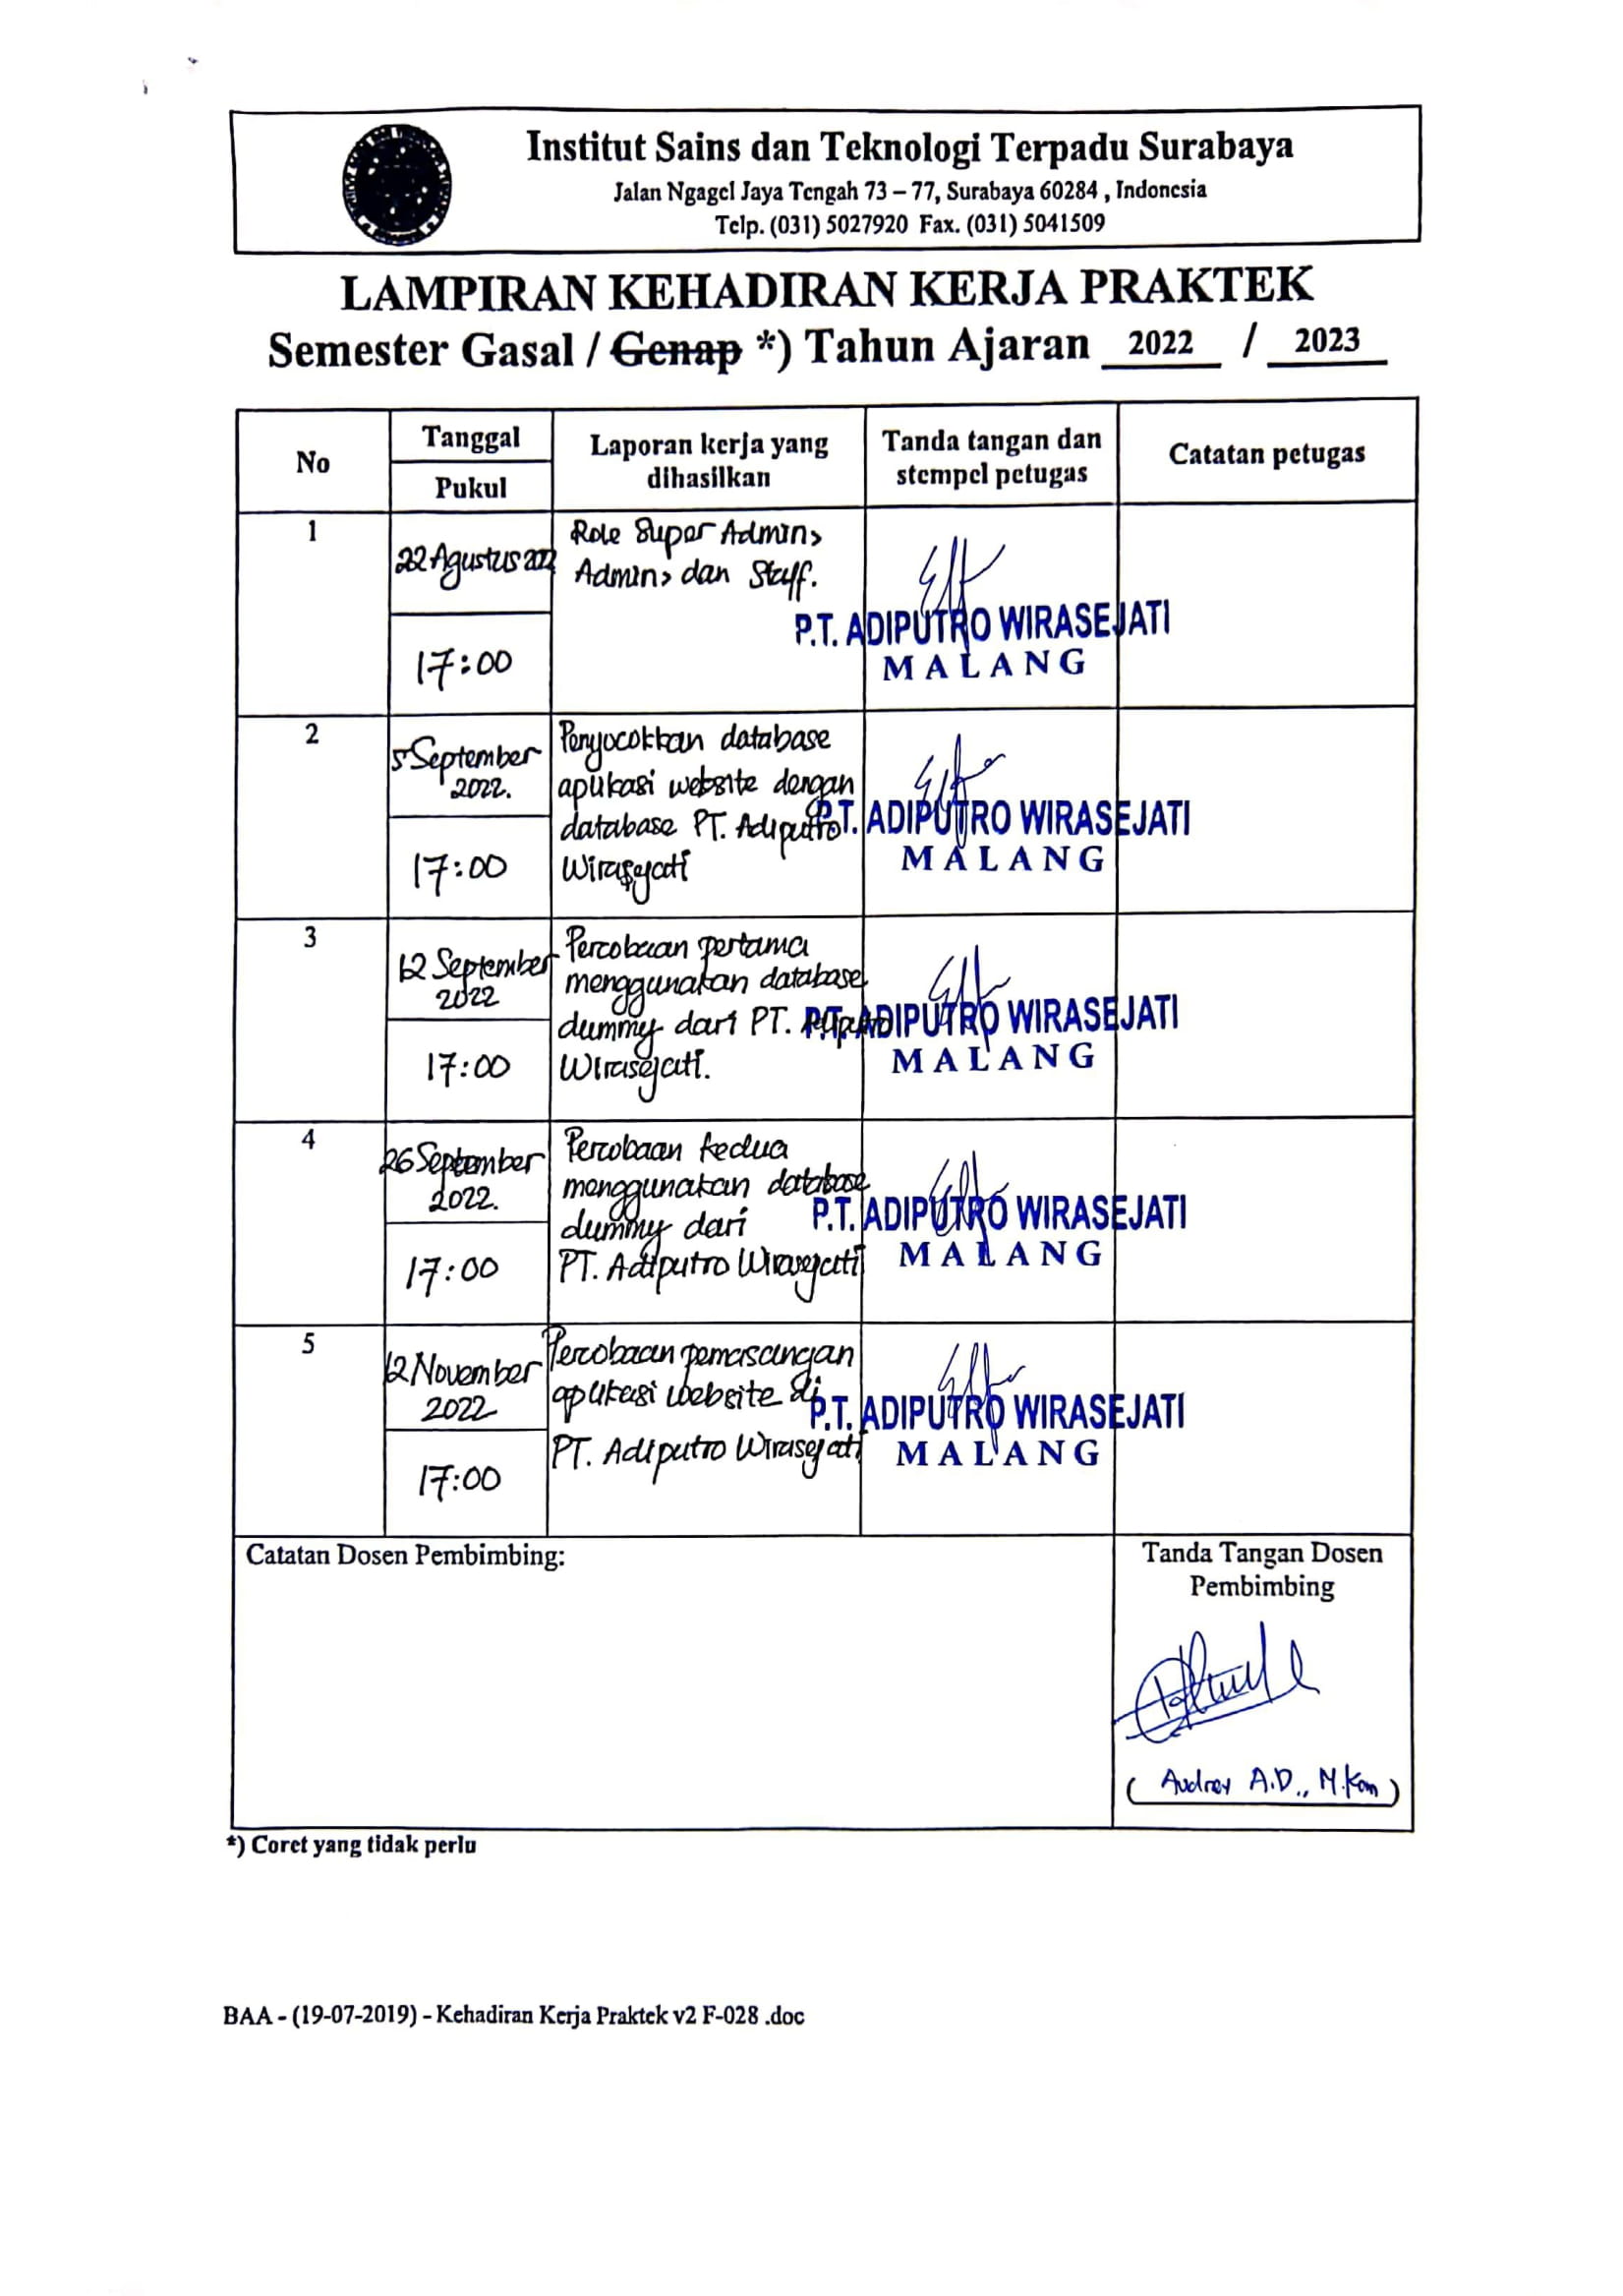 Institut Sains dan Teknologi Terpadu Surabaya
Jalan Ngagel Jaya Tengah 73 – 77, Surabaya 60284 , Indonesia
Telp. (031) 5027920 Fax. (031) 5041509
LAMPIRAN KEHADIRAN KERJA PRAKTEK
Semester Gasal / Genap *) Tahun Ajaran 2022 / 2023
No
Tanggal
Pukul
Laporan kerja yang
dihasilkan
Tanda tangan dan
stempel petugas
Catatan petugas
1
22 Agustus 2022
17:00
Role Super Admin,
Admin, dan Staff.
P.T. ADIPUTRO WIRASEJATI
MALANG
2
5 September
2022.
17:00
Penyocokkan database
aplikasi website dengan
database PT. Adiputro
Wirasejati
P.T. ADIPUTRO WIRASEJATI
MALANG
3
12 September
2022
17:00
Percobaan pertama
menggunakan database
dummy dari PT. Adiputro
Wirasejati.
P.T. ADIPUTRO WIRASEJATI
MALANG
4
26 September
2022.
17:00
Percobaan kedua
menggunakan database
dummy dari
PT. Adiputro Wirasejati
P.T. ADIPUTRO WIRASEJATI
MALANG
5
12 November
2022
17:00
Percobaan pemasangan
aplikasi website di
PT. Adiputro Wirasejati
P.T. ADIPUTRO WIRASEJATI
MALANG
Catatan Dosen Pembimbing:
Tanda Tangan Dosen
Pembimbing
( Audrey A.D., M.Kom )
*) Coret yang tidak perlu
BAA - (19-07-2019) - Kehadiran Kerja Praktek v2 F-028 .doc